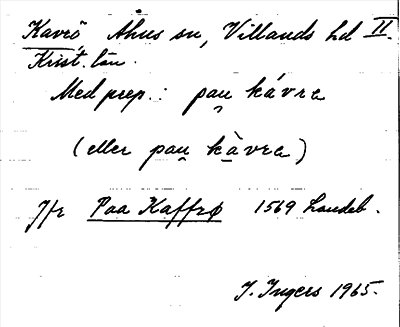 Kavrö Åhus sn, Villands hd II.
Krist. län.
Med prep.: pau̯ kávra
(eller pau̯ kàvra)
Jfr Paa Kaffrø 1569 Landeb.
I. Ingers 1965.